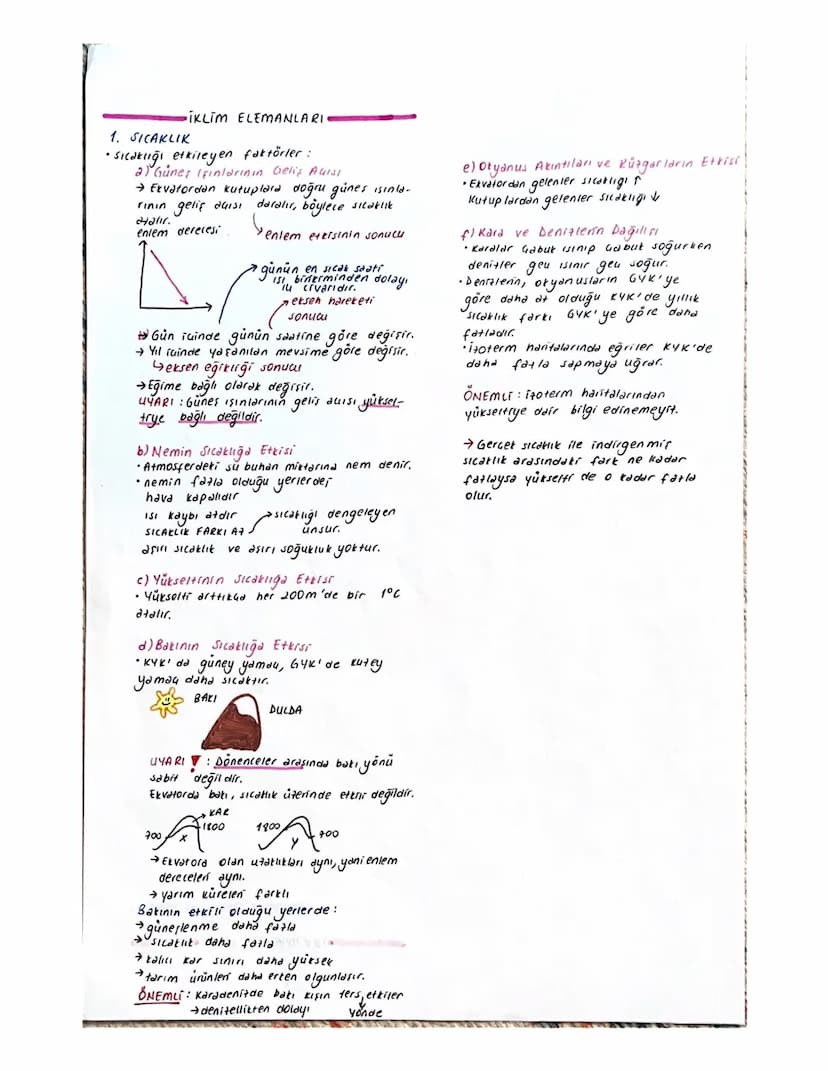 İKLİM ELEMANLARI
1. SICAKLIK
• sıcaklığı etkileyen faktörler :
a) Güneş Işınlarının Geliş Açısı
→ Ekvatordan kutuplara doğru güneş ışınla-
rının geliş açısı daralır, böylece sıcaklık
azalır.
enlem derecesi
enlem etkisinin sonucu
günün en sıcak saati
ısı birikiminden dolayı
civarıdır.
eksen hareketi
sonucu
→ Gün içinde günün saatine göre değişir.
→ Yıl içinde yaşanılan mevsime göre değişir.
↳ eksen eğikliği sonucu
→ Eğime bağlı olarak değişir.
UYARI : Güneş ışınlarının geliş açısı yüksel-
tiye bağlı değildir.
b) Nemin Sıcaklığa Etkisi
• Atmosferdeki su buharı miktarına nem denir.
• nemin fazla olduğu yerlerde;
hava kapalıdır
ısı kaybı azdır
→ sıcaklığı dengeleyen
SICAKLIK FARKI AZ
unsur.
aşırı sıcaklık ve aşırı soğukluk yoktur.
c) Yükseltinin Sıcaklığa Etkisi
• Yükselti arttıkça her 200m'de bir 1°C
azalır.
d) Bakının Sıcaklığa Etkisi
• KYK' da güney yamaç, GYK' de kuzey
yamaç daha sıcaktır.
BAKI
DULDA
UYARI ! : Dönenceler arasında bakı yönü
sabit değildir.
Ekvatorda bakı, sıcaklık üzerinde etkili değildir.
KAR
700 X 1800
1800 Y 700
→ Ekvatora olan uzaklıkları aynı, yani enlem
dereceleri aynı.
→ yarım küreleri farklı
Bakının etkili olduğu yerlerde :
→ güneşlenme daha fazla
→ sıcaklık daha fazla
→ kalıcı kar sınırı daha yüksek
→ tarım ürünleri daha erken olgunlaşır.
ÖNEMLİ : Karadenizde bakı kışın ters etkiler
→ denizellikten dolayı
yönde
e) Okyanus Akıntıları ve Rüzgarların Etkisi
• Ekvatordan gelenler sıcaklığı ↑
Kutuplardan gelenler sıcaklığı ↓
f) Kara ve Denizlerin Dağılışı
• Karalar çabuk ısınıp çabuk soğurken
denizler geç ısınır geç soğur.
• Denizlerin, okyanusların GYK'ye
göre daha az olduğu KYK'de yıllık
sıcaklık farkı GYK'ye göre daha
fazladır.
• izoterm haritalarında eğriler KYK'de
daha fazla sapmaya uğrar.
ÖNEMLİ : izoterm haritalarından
yükseltiye dair bilgi edinemeyiz.
→ Gerçek sıcaklık ile indirgenmiş
sıcaklık arasındaki fark ne kadar
fazlaysa yükselti de o kadar fazla
olur.